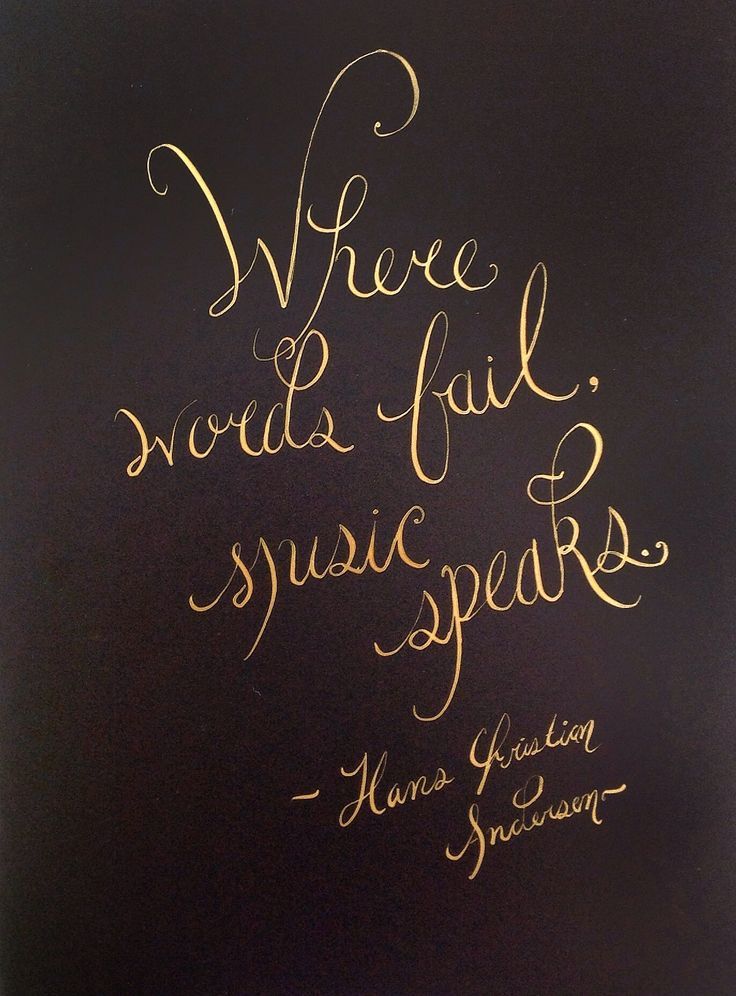 Where
words fail,
music
speaks.
- Hans Christian
Andersen-